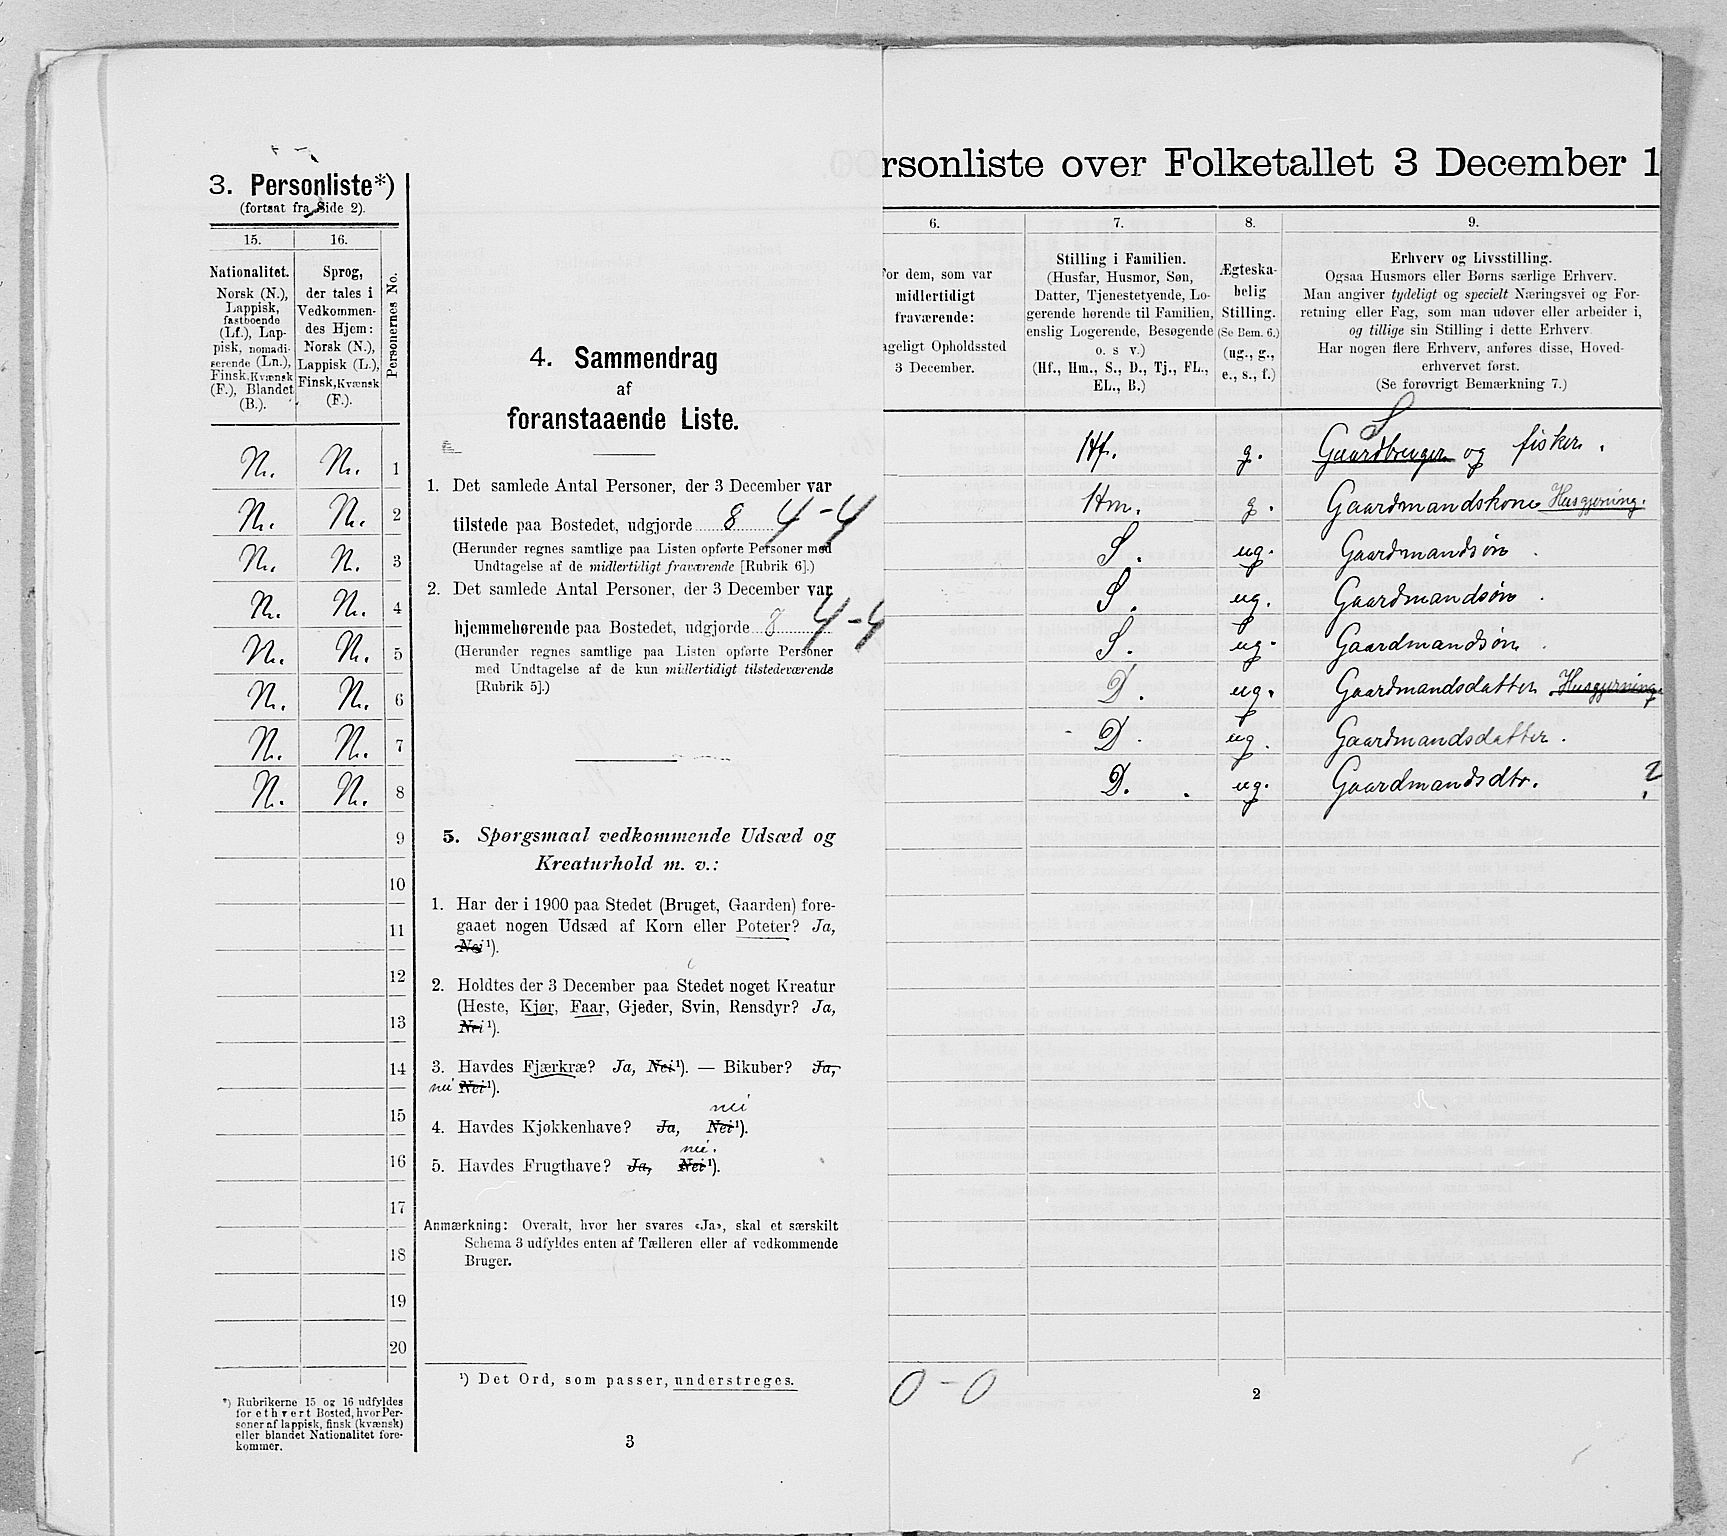 3. Personliste*)
(fortsat fra Side 2).
15.
16.
Nationalitet.
Norsk (N.),
Lappisk,
fastboende
(Lf.), Lap-
pisk, nomadi-
serende (Ln.),
Finsk, Kvænsk
(F.), Blandet
(B.).
Sprog,
der tales i
Vedkommen-
des Hjem:
Norsk (N.),
Lappisk (L.),
Finsk, Kvænsk
(F.).
Personernes No.
N. N. 1
N. N. 2
N. N. 3
N. N. 4
N. N. 5
N. N. 6
N. N. 7
N. N. 8
9
10
11
12
13
14
15
16
17
18
19
20
*) Rubrikerne 15 og 16 udfyldes
for ethvert Bosted, hvor Per-
soner af lappisk, finsk (kvænsk)
eller blandet Nationalitet fore-
kommer.
4. Sammendrag
af
foranstaaende Liste.
1. Det samlede Antal Personer, der 3 December var
tilstede paa Bostedet, udgjorde 8 4-4
(Herunder regnes samtlige paa Listen opførte Personer med
Undtagelse af de midlertidigt fraværende [Rubrik 6].)
2. Det samlede Antal Personer, der 3 December var
hjemmehørende paa Bostedet, udgjorde 8 4-4
(Herunder regnes samtlige paa Listen opførte Personer
med Undtagelse af de kun midlertidigt tilstedeværende
[Rubrik 5].)
5. Spørgsmaal vedkommende Udsæd og
Kreaturhold m. v.:
1. Har der i 1900 paa Stedet (Bruget, Gaarden) fore-
gaaet nogen Udsæd af Korn eller Poteter? Ja,
Nei ¹).
2. Holdtes der 3 December paa Stedet noget Kreatur
(Heste, Kjør, Faar, Gjeder, Svin, Rensdyr? Ja,
Nei ¹).
3. Havdes Fjærkræ? Ja, Nei ¹). — Bikuber? Ja,
nei Nei ¹).
nei
4. Havdes Kjøkkenhave? Ja, Nei ¹).
nei.
5. Havdes Frugthave? Ja, Nei ¹).
Anmærkning: Overalt, hvor her svares «Ja», skal et særskilt
Schema 3 udfyldes enten af Tælleren eller af vedkommende
Bruger.
¹) Det Ord, som passer, understreges.
3
rsonliste over Folketallet 3 December 1
6.
7.
8.
9.
for dem, som var
midlertidigt
fraværende:
ageligt Opholdssted
3 December.
Stilling i Familien.
(Husfar, Husmor, Søn,
Datter, Tjenestetyende, Lo-
gerende hørende til Familien,
enslig Logerende, Besøgende
o. s v.)
(Hf., Hm., S., D., Tj., FL.,
EL., B.)
Ægteska-
belig
Stilling.
(Se Bem. 6.)
(ug., g.,
e., s., f.)
Erhverv og Livsstilling.
Ogsaa Husmors eller Børns særlige Erhverv.
Man angiver tydeligt og specielt Næringsvei og For-
retning eller Fag, som man udøver eller arbeider i,
og tillige sin Stilling i dette Erhverv
Har nogen flere Erhverv, anføres disse, Hoved-
erhvervet først.
(Se forøvrigt Bemærkning 7.)
S
Hf. g. Gaardbruger og fisker.
Hm. g. Gaardmandskone Husgjerning.
S. ug. Gaardmandsøn.
S. ug. Gaardmandsøn.
S. ug. Gaardmandsøn.
D. ug. Gaardmandsdatter Husgjerning.
D. ug. Gaardmandsdatter.
D. ug. Gaardmandsdtr. ?
0-0
2